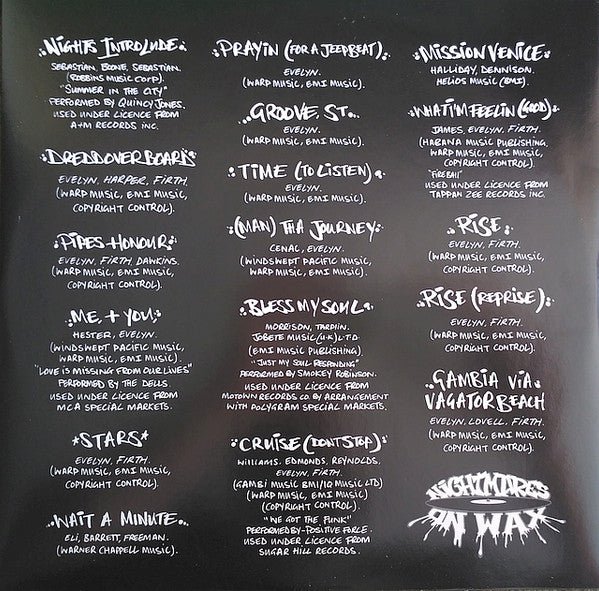 Nights Introlude
Sebastian, Boone, Sebastian.
(Robbins Music Corp).
"Summer in the City"
Performed by Quincy Jones.
Used under licence from
A+M Records Inc.
Dreddoverboard
Evelyn, Harper, Firth.
(Warp Music, EMI Music,
Copyright Control).
Pipes Honour
Evelyn, Firth, Dawkins.
(Warp Music, EMI Music,
Copyright Control).
Me + You
Hester, Evelyn.
(Windswept Pacific Music,
Warp Music, EMI Music).
"Love is missing from our lives"
Performed by The Dells.
Used under licence from
MCA Special Markets.
*Stars*
Evelyn, Firth.
(Warp Music, EMI Music,
Copyright Control).
Wait a Minute
Eli, Barrett, Freeman.
(Warner Chappell Music).
Prayin (for a Jeepbeat)
Evelyn.
(Warp Music, EMI Music).
Groove St.
Evelyn.
(Warp Music, EMI Music).
Time (to Listen)
Evelyn.
(Warp Music, EMI Music).
(Man) Tha Journey
Cenac, Evelyn.
(Windswept Pacific Music,
Warp Music, EMI Music).
Bless My Soul
Morrison, Tarplin.
Jobete Music (U.K) LTD.
(EMI Music Publishing)
"Just my soul responding"
Performed by Smokey Robinson.
Used under licence from
Motown Records Co. by arrangement
with Polygram Special Markets.
Cruise (Dont Stop)
Williams, Edmonds, Reynolds,
Evelyn, Firth.
(Gambi Music BMI/IQ Music LTD)
(Warp Music, EMI Music)
(Copyright Control).
"We got the funk"
Performed by-Positive Force.
Used under licence from
Sugar Hill Records.
Mission Venice
Halliday, Dennison.
Helios Music (BMI).
What I'm Feelin (Good)
James, Evelyn, Firth.
(Habana Music Publishing,
Warp Music, EMI Music,
Copyright Control).
"Fireball"
Used under licence from
Tappan Zee Records Inc.
Rise
Evelyn, Firth.
(Warp Music, EMI Music,
Copyright Control).
Rise (Reprise)
Evelyn, Firth.
(Warp Music, EMI Music,
Copyright Control).
Gambia Via
Vagator Beach
Evelyn, Lovell, Firth.
(Warp Music, EMI Music,
Copyright Control).
Nightmares
on Wax